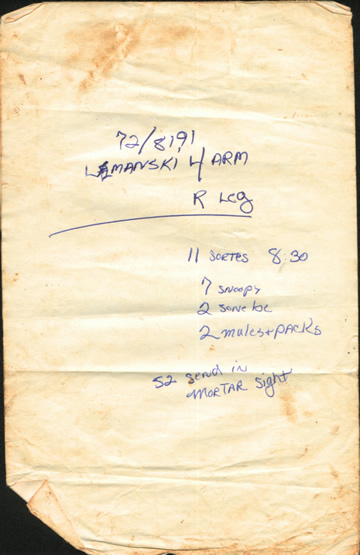 72/8191
LEMANSKI 4 ARM
R Leg
11 SORTES 8:30
7 SNOOPY
2
2 mules + PACKS
S2 Send in
MORTAR Sight